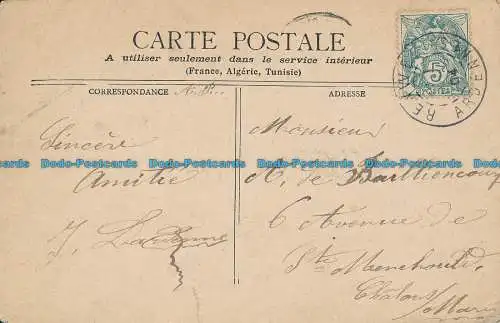 CARTE POSTALE
A utiliser seulement dans le service intérieur
(France, Algérie, Tunisie)
CORRESPONDANCE
ADRESSE
Sincère
Amitié
Monsieur
de
6 Avenue de
Ste Menehould
Chalons s/Marne
5
Dodo-Postcards Dodo-Postcards Dodo-Postcards Dodo-Postcards Dodo-Postcards